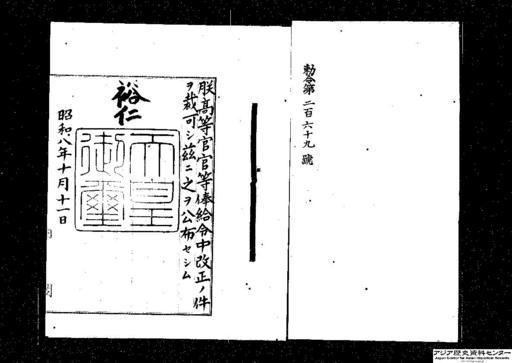 勅令第二百六十九號
朕高等官官等俸給令中改正ノ件
ヲ裁可シ茲ニ之ヲ公布セシム
裕仁
天皇御璽
昭和八年十月十一日
内閣
アジア歴史資料センター
Japan Center for Asian Historical Records